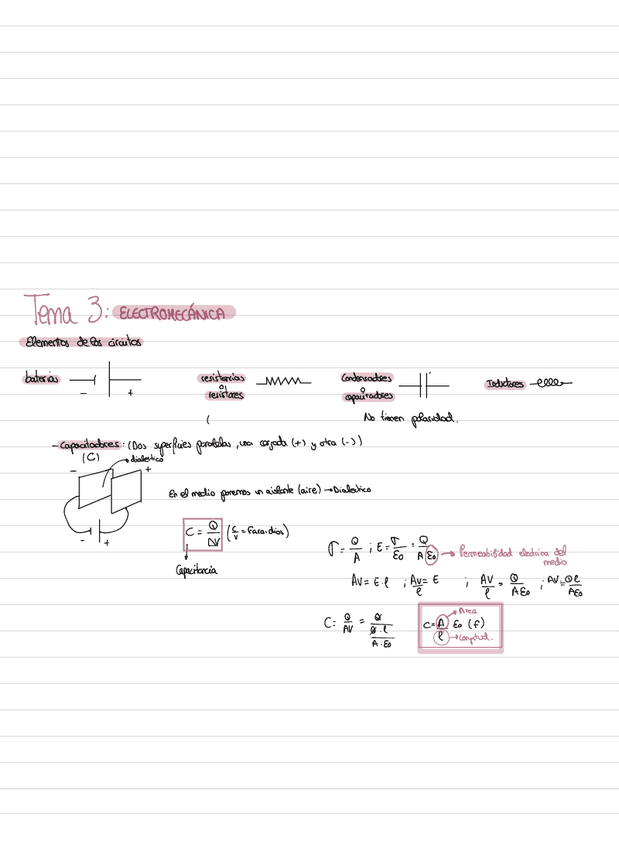 Tema 3: ELECTROMECÁNICA
Elementos de los circuitos
baterias - +
resistencias o resistores
Condensadores o capacitadores
Inductores
(
No tienen polaridad.
- Capacitadores: (Dos superficies paralelas, una cargada (+) y otra (-))
(C)
dialectico
- +
En el medio ponemos un aislante (aire) → Dialectico
- +
C = Q/ΔV (C/V = Faradios)
Capacitancia
σ = Q/A ; E = σ/ε0 = Q/(A ε0) → Permeabilidad electrica del medio
ΔV = E·l ; ΔV/l = E ; ΔV/l = Q/(A ε0) ; ΔV = Q l/(A ε0)
C = Q/ΔV = Q/(Q·l/(A·ε0))
C = A/l ε0 (F)
→ Area
→ Longitud.